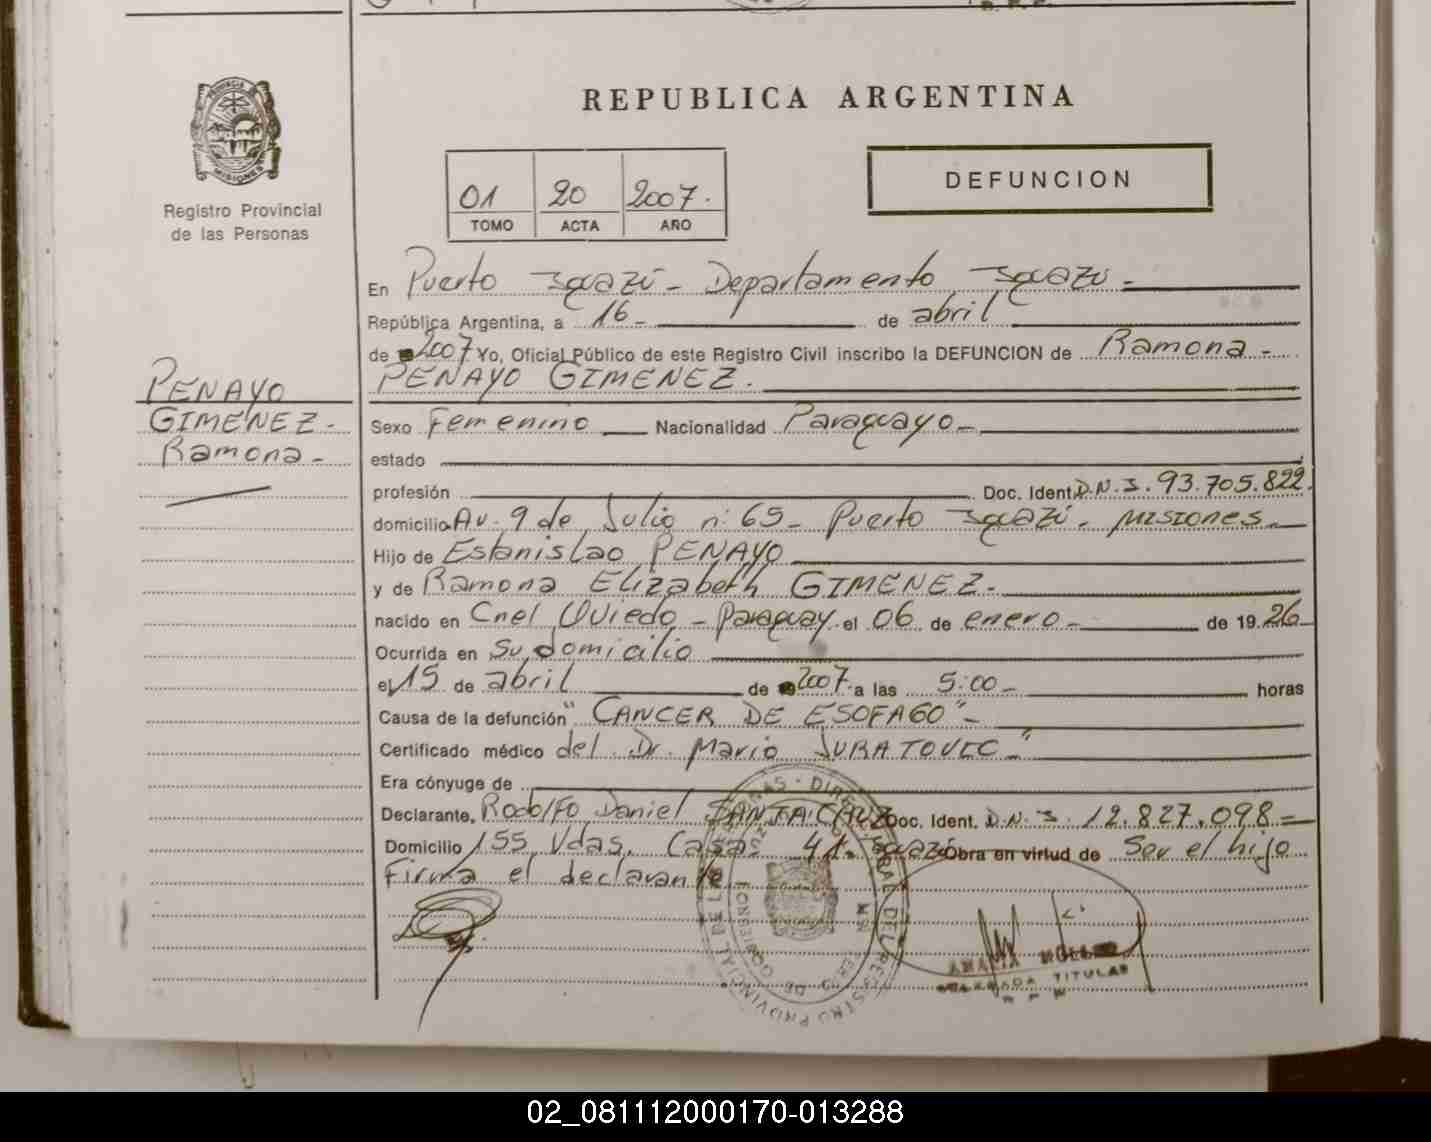 PROVINCIA DE
MISIONES
Registro Provincial
de las Personas
REPUBLICA ARGENTINA
01 20 2007.
TOMO ACTA AÑO
DEFUNCION
En Puerto Iguazú - Departamento Iguazú -
República Argentina, a 16 - de abril
de 2007 Yo, Oficial Público de este Registro Civil inscribo la DEFUNCION de Ramona -
PENAYO GIMENEZ.
PENAYO
GIMENEZ -
Ramona -
Sexo Femenino Nacionalidad Paraguayo -
estado
profesión Doc. Ident. D.N.I. 93.705.822.
domicilio Av. 9 de Julio nº 65 - Puerto Iguazú - MISIONES -
Hijo de Estanislao PENAYO
y de Ramona Elizabeth GIMENEZ -
nacido en Cnel Oviedo - Paraguay. el 06 de enero - de 19 26
Ocurrida en Su domicilio
el 15 de abril de 2007 a las 5:00 - horas
Causa de la defunción "CANCER DE ESOFAGO" -
Certificado médico del Dr. Mario JURATOVIC "
Era cónyuge de
Declarante, Rodolfo Daniel SANTA CRUZ Doc. Ident. D.N.I. 12.827.098 -
Domicilio 155 Vdas. Casa 41 - Iguazú Obra en virtud de Ser el hijo
Firma el declarante
TITULAR
02_081112000170-013288